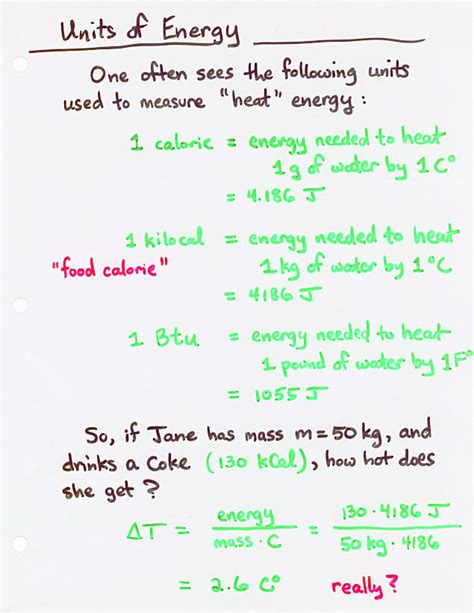 Units of Energy
One often sees the following units
used to measure "heat" energy:
1 calorie = energy needed to heat
1g of water by 1 C°
= 4.186 J
1 kilocal = energy needed to heat
"food calorie" 1 kg of water by 1°C
= 4186 J
1 Btu = energy needed to heat
1 pound of water by 1F°
= 1055 J
So, if Jane has mass m = 50 kg, and
drinks a Coke (130 kCal), how hot does
she get?
ΔT = energy / mass · C = 130 · 4186 J / 50 kg · 4186
= 2.6 C° really?